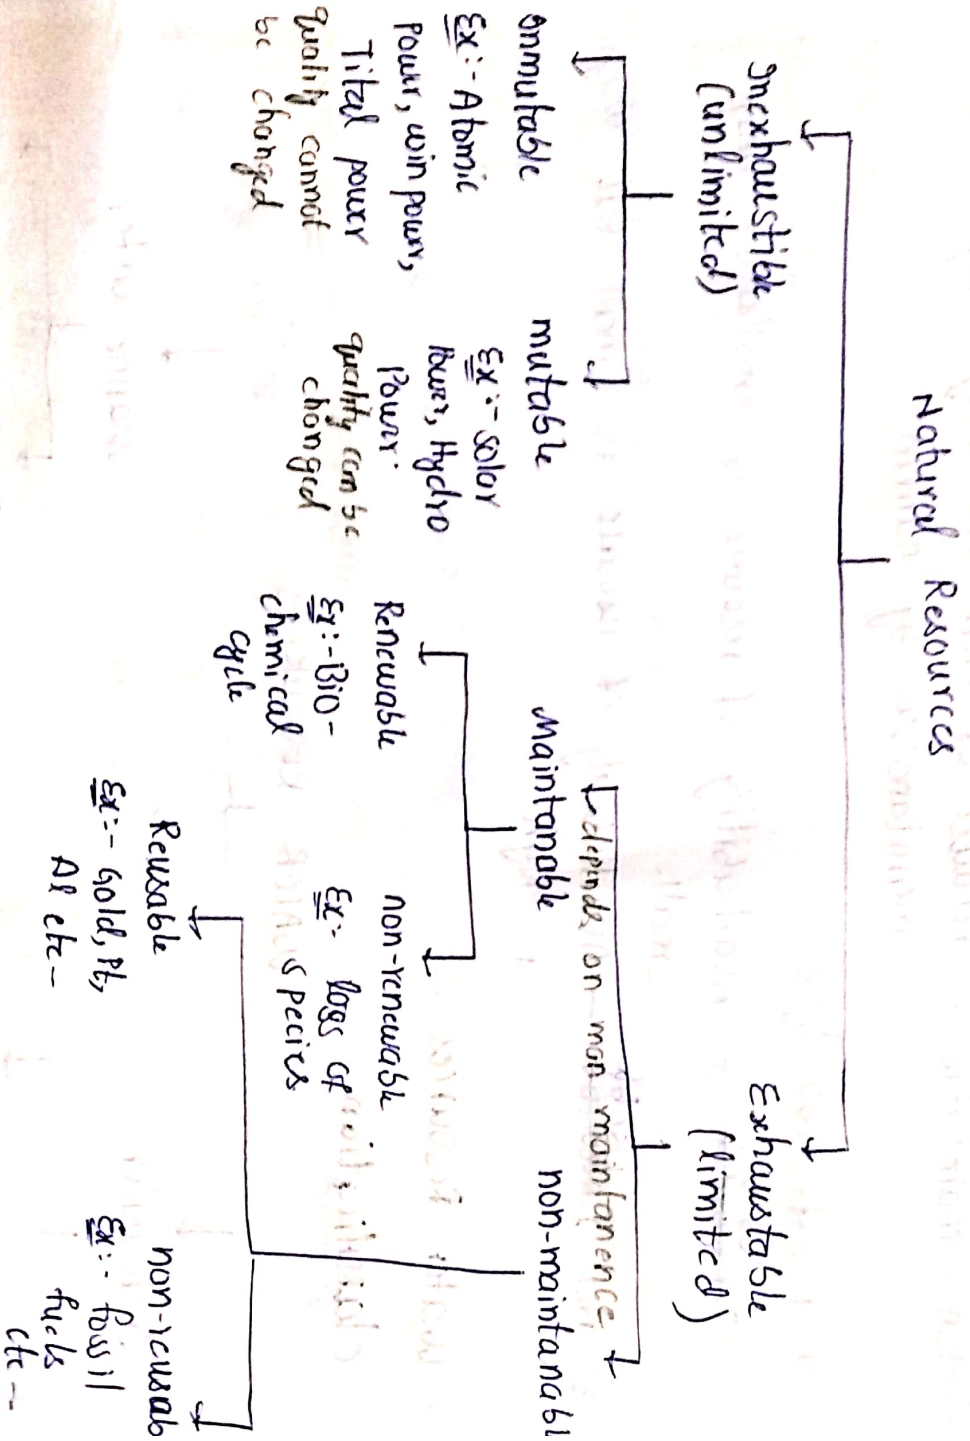 Natural Resources
Inexhaustible
(unlimited)
Exhaustable
(limited)
Immutable
Ex:- Atomic
Power, win power,
Tital power
quality cannot
be changed
mutable
Ex:- solar
Power, Hydro
Power.
quality can be
changed
depends on man maintanence
Maintanable
non-maintanable
Renewable
Ex:- Bio-
chemical
cycle
non-renewable
Ex:- loss of
species
Reusable
Ex:- Gold, Pt,
Al etc-
non-reusab
Ex:- fossil
fuels
etc-